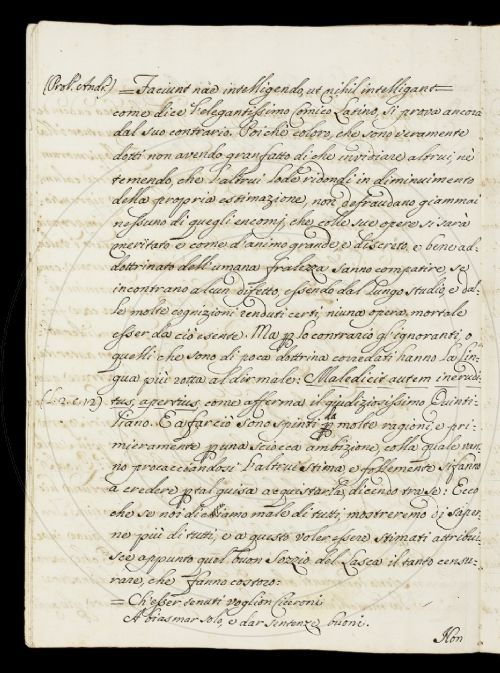 (Prol. Andr.) = Faciunt nae intelligendo, ut nihil intelligant =
come dice l'elegantissimo Comico Latino, si prova ancora
dal suo contrario. Poichè coloro, che sono veramente
dotti non avendo gran fatto di che invidiare altrui, nè
temendo, che l'altrui lode ridondi in diminuimento
della propria estimazione, non defraudano giammai
nessuno di quegli encomj, che colle sue opere si sarà
meritato e come d'animo grande, e discreto, e bene ad-
dottrinato dell'umana fralezza sanno compatire, se
incontrano alcun difetto, essendo dal lungo studio, e dal-
le molte cognizioni renduti certi, niuna opera mortale
esser da ciò esente. Ma p lo contrario gl'ignoranti, o
quelli che sono di poca dottrina corredati hanno la lin-
gua più rotta al dir male: Maledicit autem inerudi-
(L. 2. c. 12) tus, apertius, come afferma il giudiziosissimo Quinti-
liano. E a far ciò sono spinti da molte ragioni, e pri-
mieramente p una sciocca ambizione, colla quale van-
no procacciandosi l'altrui stima, e follemente si fanno
a credere p tal guisa acquistarla, dicendo tra se: Ecco
che se noi diciamo male di tutti, mostreremo di saper-
ne più di tutti, e a questo voler essere stimati attribui-
sce appunto quel buon Sozzio del Lasca il tanto censu-
rare, che fanno costoro:
= Ch'esser tenuti voglion Ciceroni
A biasmar solo, e dar sentenze buoni.
Non